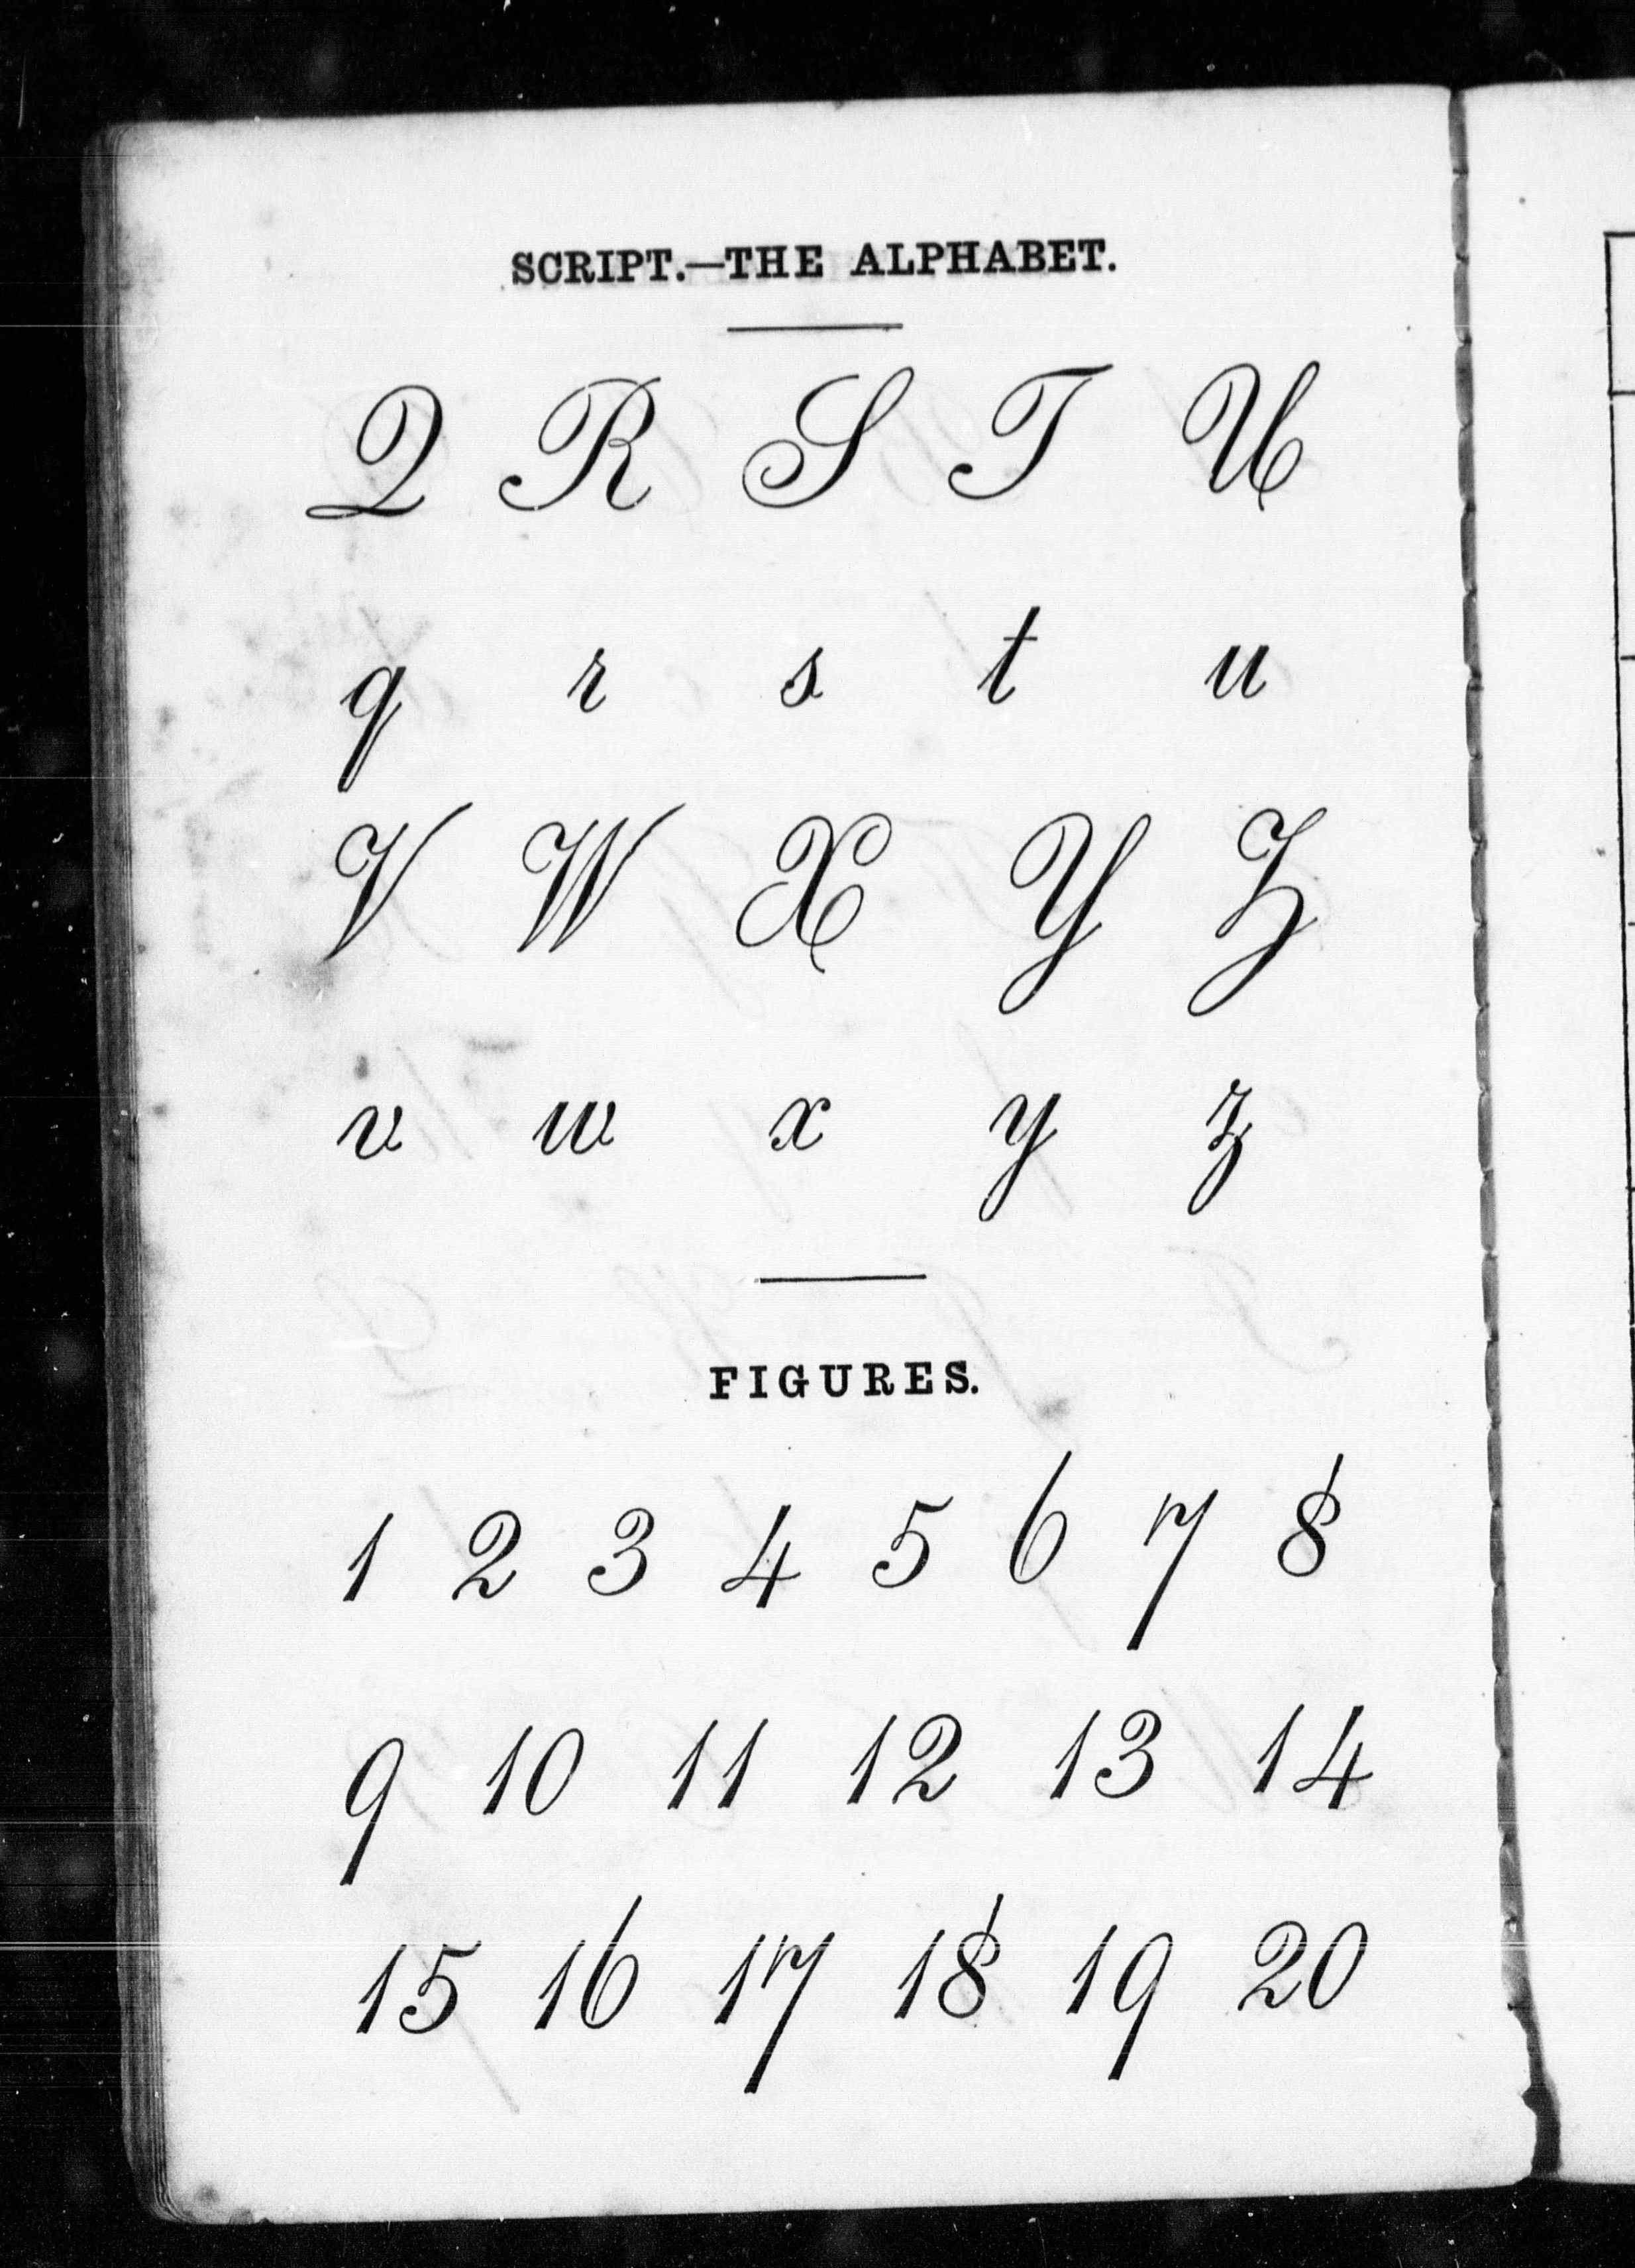 SCRIPT.—THE ALPHABET.
Q R S T U
q r s t u
V W X Y Z
v w x y z
FIGURES.
1 2 3 4 5 6 7 8
9 10 11 12 13 14
15 16 17 18 19 20